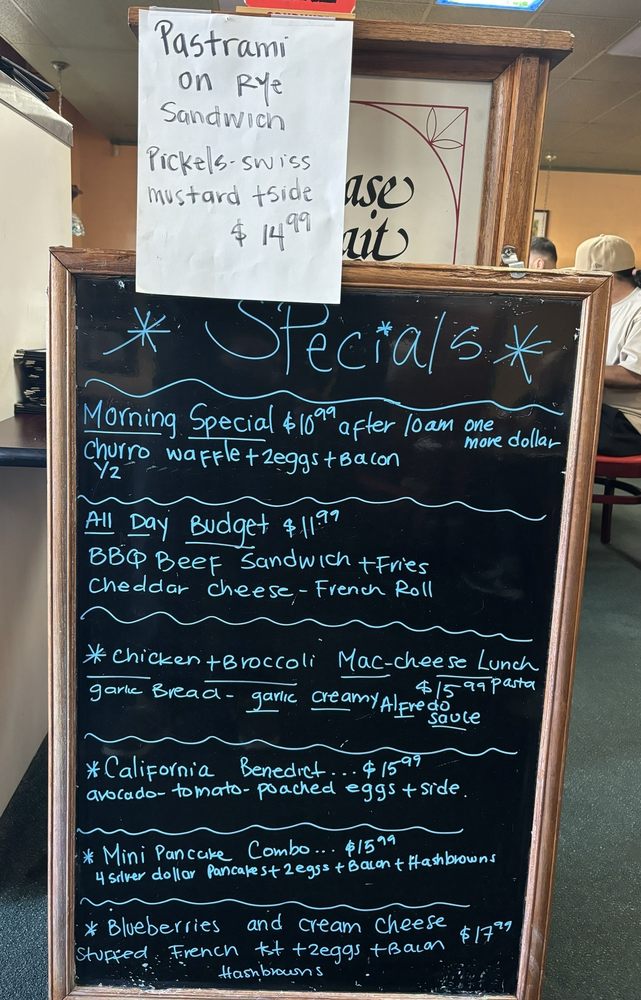 Pastrami
on Rye
Sandwich
Pickels-swiss
mustard +side
$14.99
ase
ait
* Specials *
Morning Special $10.99 after 10am one
more dollar
churro waffle + 2eggs + Bacon
1/2
All Day Budget $11.99
BBQ Beef Sandwich + Fries
Cheddar cheese - French Roll
* chicken + Broccoli Mac-cheese Lunch
$15.99 pasta
garlic Bread - garlic creamy Alfredo
sauce
* California Benedict... $15.99
avocado - tomato - poached eggs + side.
* Mini Pancake Combo... $15.99
4 silver dollar Pancakes + 2eggs + Bacon + Hashbrowns
* Blueberries and cream cheese
$17.99
Stuffed French tst + 2eggs + Bacon
Hashbrowns